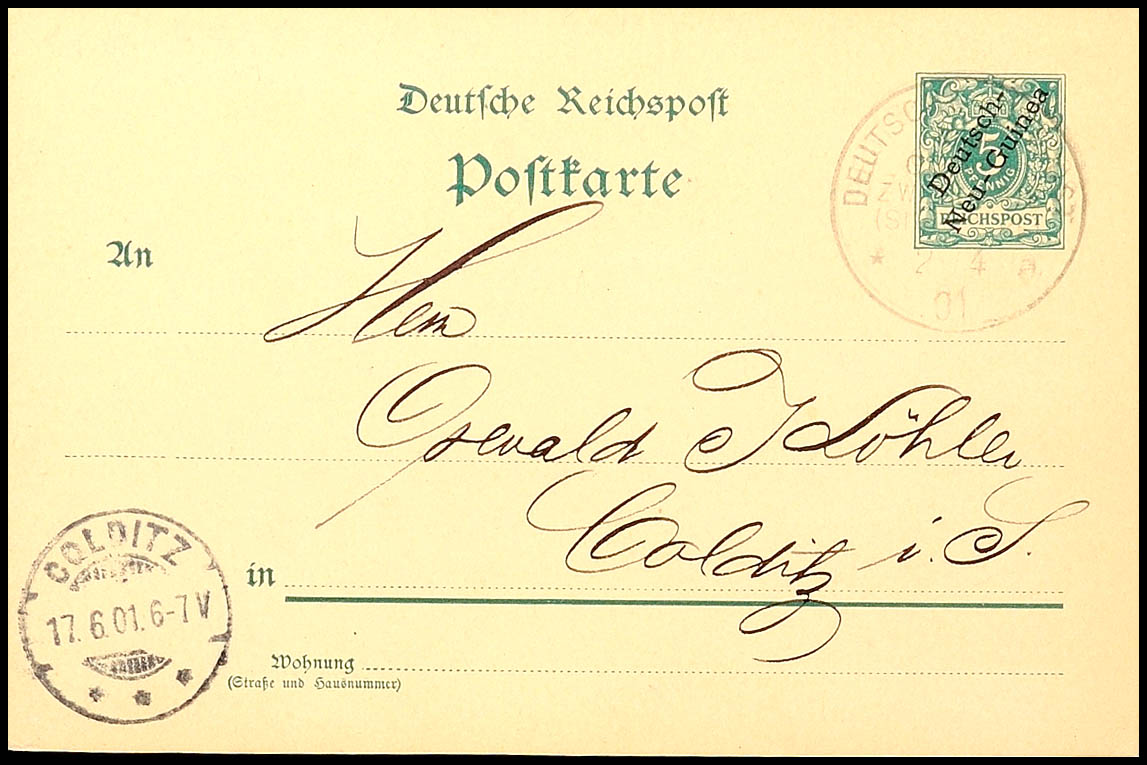 Deutsche Reichspost
Postkarte
5
PFENNIG
REICHSPOST
Deutsch-
Neu-Guinea
DEUTSC
ZW
* 2 4 a.
01
An
Herrn
Oswald J Köhler
in Colditz i. S.
Wohnung
(Straße und Hausnummer)
COLDITZ
17.6.01.6-7V
* * *